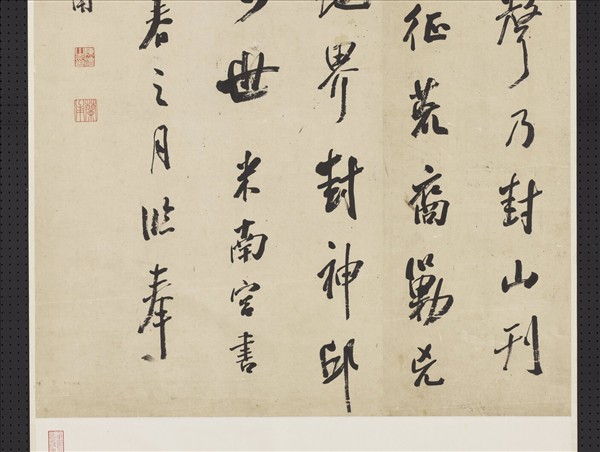 聲乃封山刊
征荒裔勦凶
地界封神邱
世 米南宮書
春之月臨奉